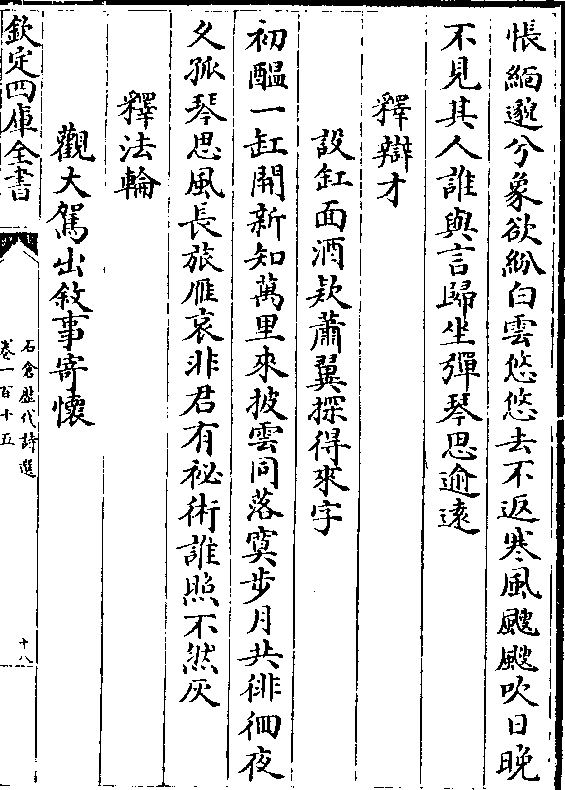 悵緬邈兮象欲紛白雲悠悠去不返寒風颼颼吹日晚
不見其人誰與言歸坐彈琴思逾遠
釋辯才
設缸面酒款蕭翼探得來字
初醖一缸開新知萬里來披雲同落寞步月共徘徊夜
久孤琴思風長旅雁哀非君有祕術誰照不然灰
釋法輪
觀大駕出敘事寄懷
欽定四庫全書
石倉歷代詩選
卷一百十五
十八